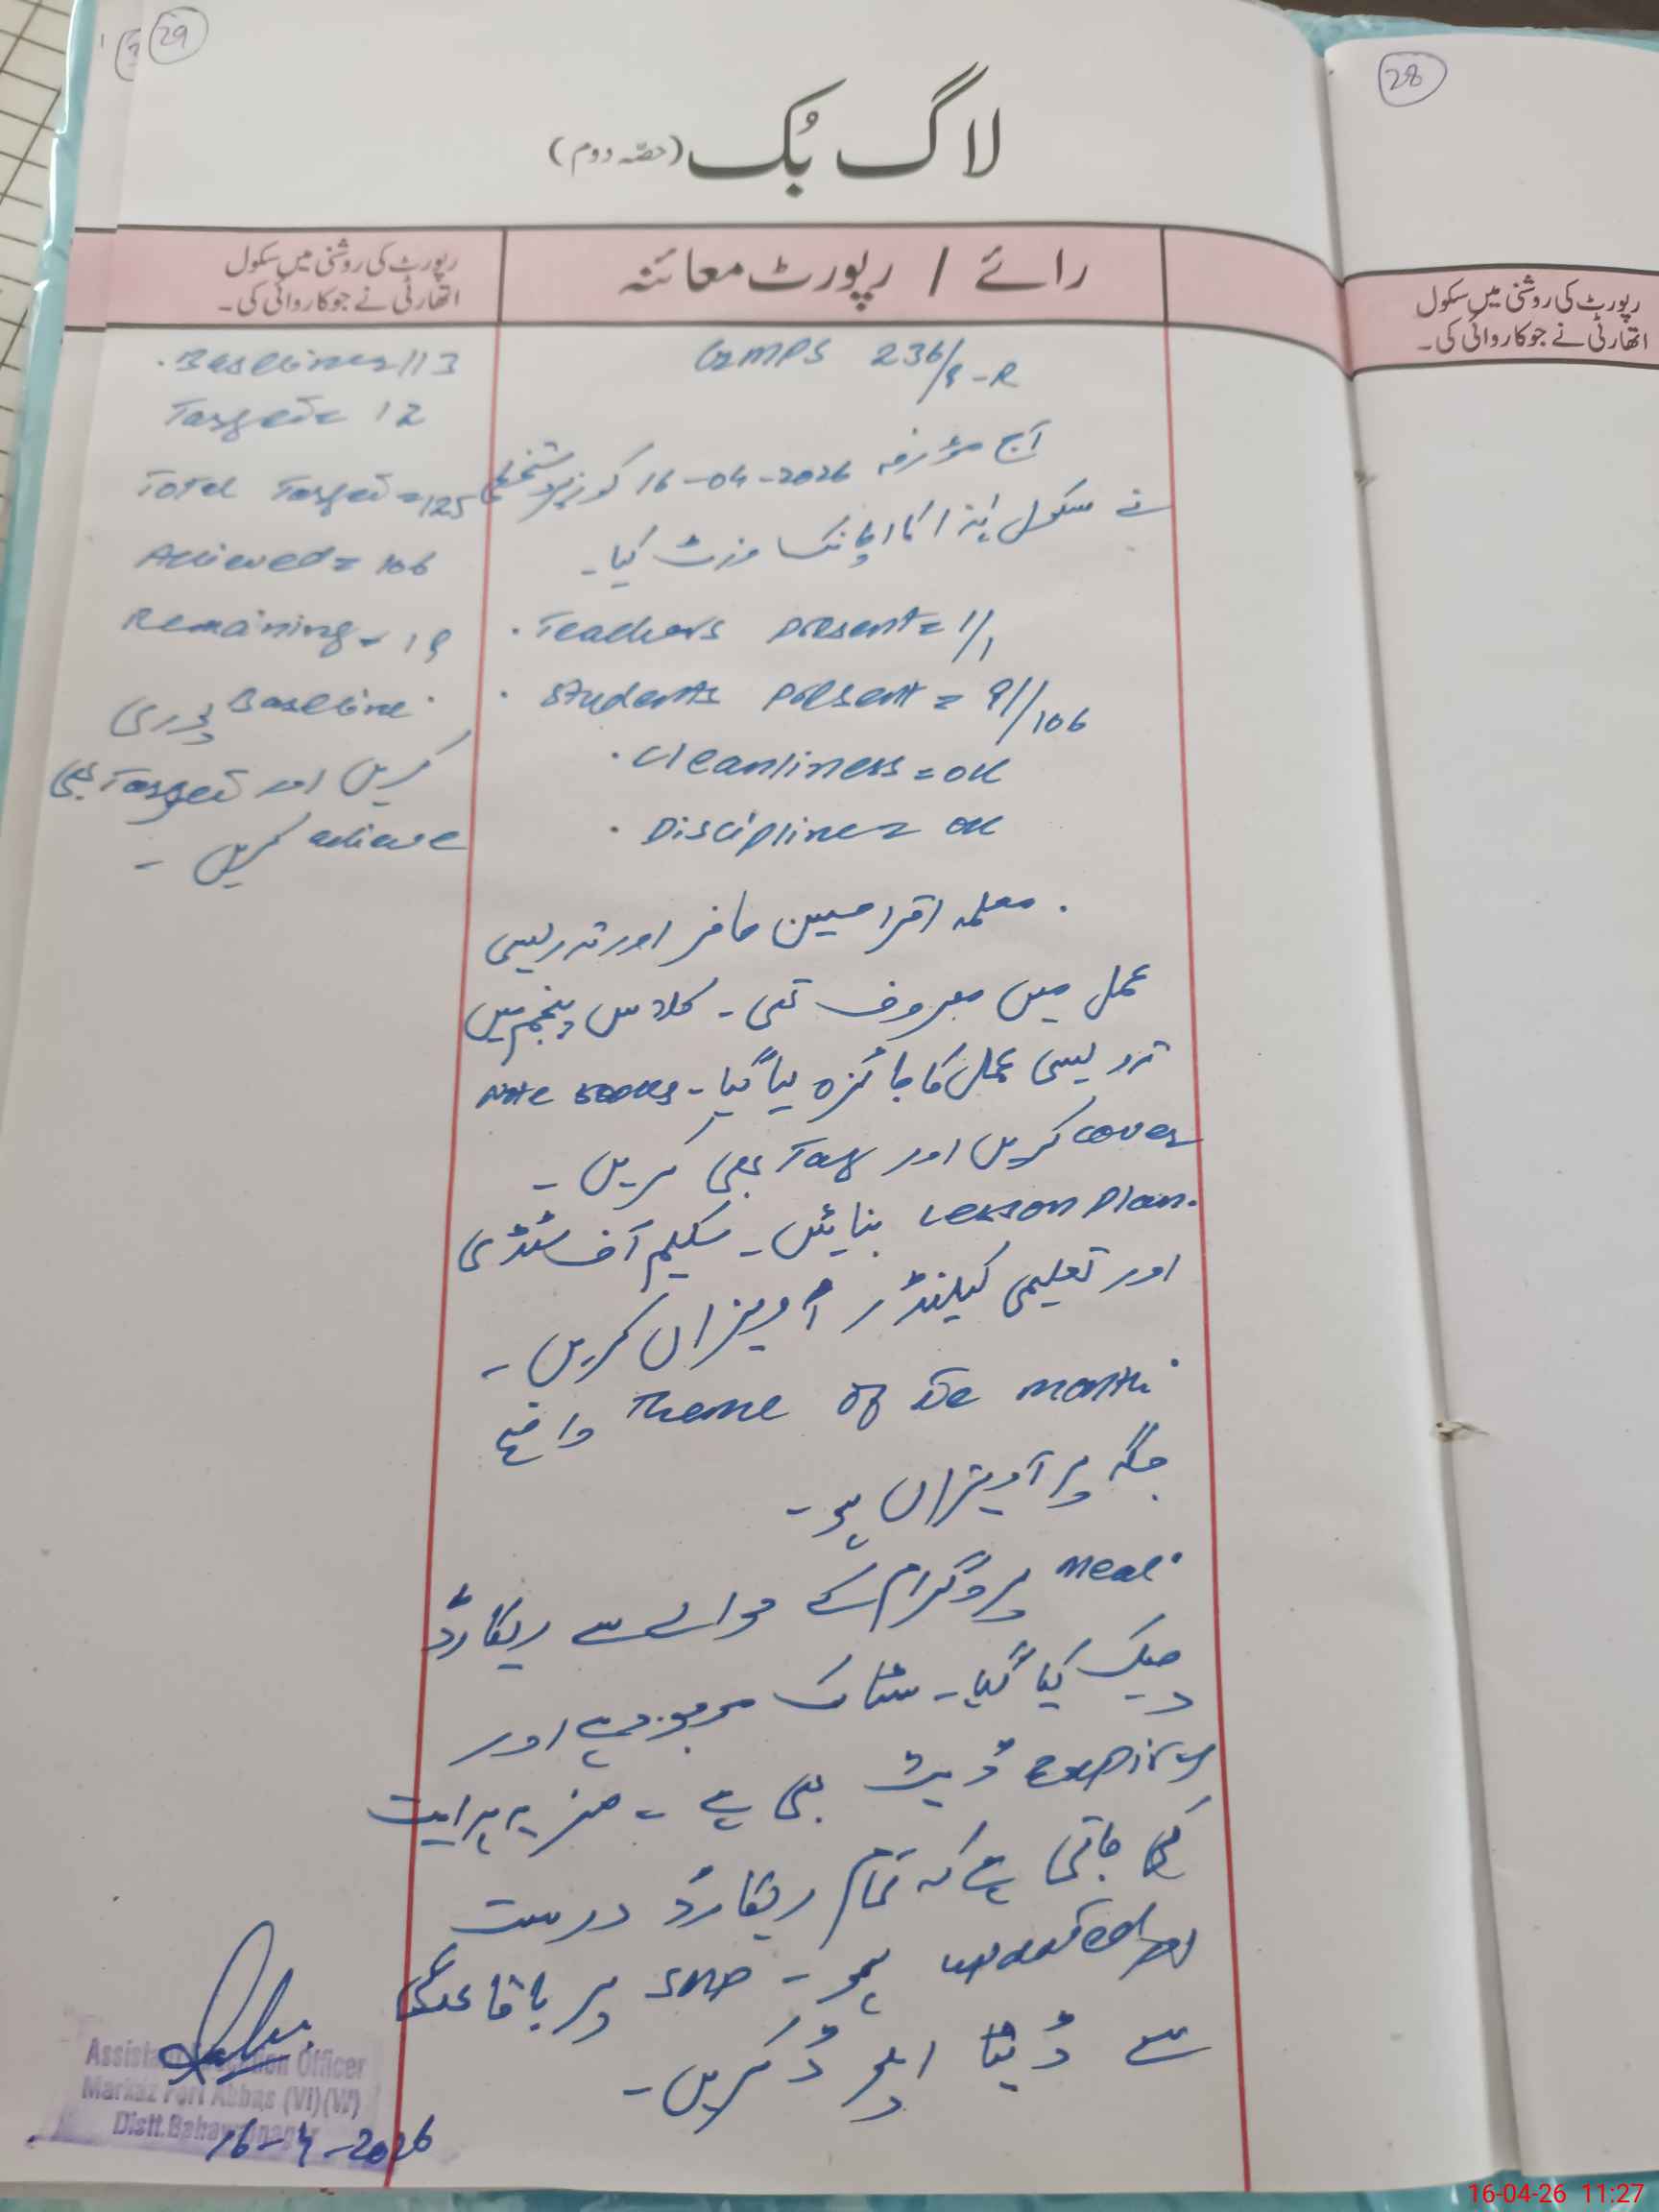 29
28
لاگ بُک (حصّہ دوم)
رائے / رپورٹ معائنہ
رپورٹ کی روشنی میں سکول
اتھارٹی نے جو کاروائی کی۔
رپورٹ کی روشنی میں سکول
اتھارٹی نے جو کاروائی کی۔
GMPS 236/9-R
آج مؤرخہ 16-04-2026 کو زیر دستخطی
نے سکول ہذا کا اچانک وزٹ کیا۔
. Teachers present = 1/1
. Students present = 91/106
. Cleanliness = ok
. Discipline = ok
. معلمہ اقرا حاضر اور تدریسی
عمل میں مصروف تھی۔ کلاس پنجم میں
تدریسی عمل کا جائزہ لیا گیا۔ Note books
cover کریں اور Tag بھی کریں۔
. Lesson plan بنائیں۔ سکیم آف سٹڈی
اور تعلیمی کیلنڈر آویزاں کریں۔
. Theme of the month واضح
جگہ پر آویزاں ہو۔
. Meal پروگرام کے حوالے سے ریکارڈ
چیک کیا گیا۔ سٹاک موجود ہے اور
Expiry ڈیٹ بھی ہے۔ مزید ہدایت
کی جاتی ہے کہ تمام ریکارڈ درست
اور updated ہو۔ پر باقاعدگی
سے ڈیٹا اپلوڈ کریں۔
. Baseline = 113
Target = 12
Total Target = 125
Achieved = 106
Remaining = 19
. Baseline پوری
کریں اور Target بھی
achieve کریں۔
Assistant Education Officer
Markaz Fort Abbas (VI)(W)
Distt. Bahawalnagar
16-4-2026
16-04-26 11:27